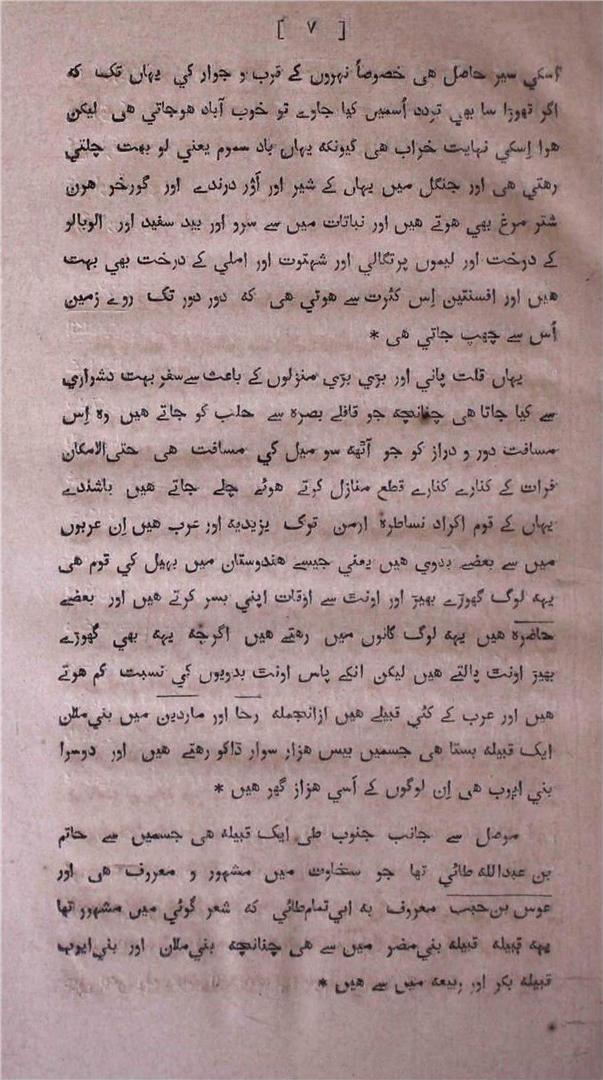 [ ۷ ]
اُسکي سیر حاصل هی خصوصاً نہروں کے قرب و جوار کي یہاں تک که
اگر تھوڑا سا بھي تردد اُسمیں کیا جاوے تو خوب آباد هوجاتي هی لیکن
هوا اِسکي نہایت خراب هی کیونکه یہاں باد سموم یعني لو بہت چلتي
رهتي هی اور جنگل میں یہاں کے شیر اور اَوْر درندے اور گورخر هرن
شتر مرغ بھي هوتے هیں اور نباتات میں سے سرو اور بید سفید اور الوبالو
کے درخت اور لیموں پرتگالي اور شہتوت اور املي کے درخت بھي بہت
هیں اور افسنتین اِس کثرت سے هوتي هی که دور دور تک روے زمین
اُس سے چھپ جاتي هی *
یہاں قلت پاني اور بڑي بڑي منزلوں کے باعث سے سفر بہت دشواري
سے کیا جاتا هی چنانچه جو قافلے بصره سے حلب کو جاتے هیں وه اِس
مسافت دور و دراز کو جو آٹھه سو میل کي مسافت هی حتی‌الامکان
فرات کے کنارے کنارے قطع منازل کرتے هوئے چلے جاتے هیں باشندے
یہاں کے قوم اکراد نساطرہ ارمن ترک یزیدیه اور عرب هیں اِن عربوں
میں سے بعضے بدوي هیں یعني جیسے هندوستان میں بھیل کي قوم هی
یہه لوگ گھوڑے بھیڑ اور اونٹ سے اوقات اپني بسر کرتے هیں اور بعضے
حاضرہ هیں یہه لوگ گانوں میں رهتے هیں اگرچه یہه بھي گھوڑے
بھیڑ اونٹ پالتے هیں لیکن انکے پاس اونٹ بدویوں کي نسبت کم هوتے
هیں اور عرب کے کئي قبیلے هیں ازانجمله رحا اور ماردین میں بني‌ملان
ایک قبیله بستا هی جسمیں بیس هزار سوار ڈاکو رهتے هیں اور دوسرا
بني ایوب هی اِن لوگوں کے اَسي هزار گھر هیں *
موصل سے جانب جنوب طی ایک قبیله هی جسمیں سے حاتم
بن عبدالله طائي تھا جو سخاوت میں مشہور و معروف هی اور
عوس بن حبیب معروف به ابي‌تمام‌طائي که شعر گوئي میں مشہور تھا
یہه قبیله قبیله بني‌مضر میں سے هی چنانچه بني‌ملان اور بني‌ایوب
قبیله بکر اور ربیعه میں سے هیں *